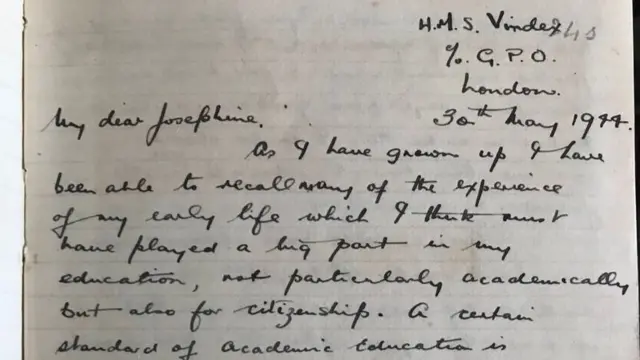 H.M.S. Vindex 40
c/o G.P.O.
London.
30th May 1944.
My dear Josephine,
As I have grown up I have
been able to recall many of the experience
of my early life which I think must
have played a big part in my
education, not particularly academically
but also for citizenship. A certain
standard of academic education is